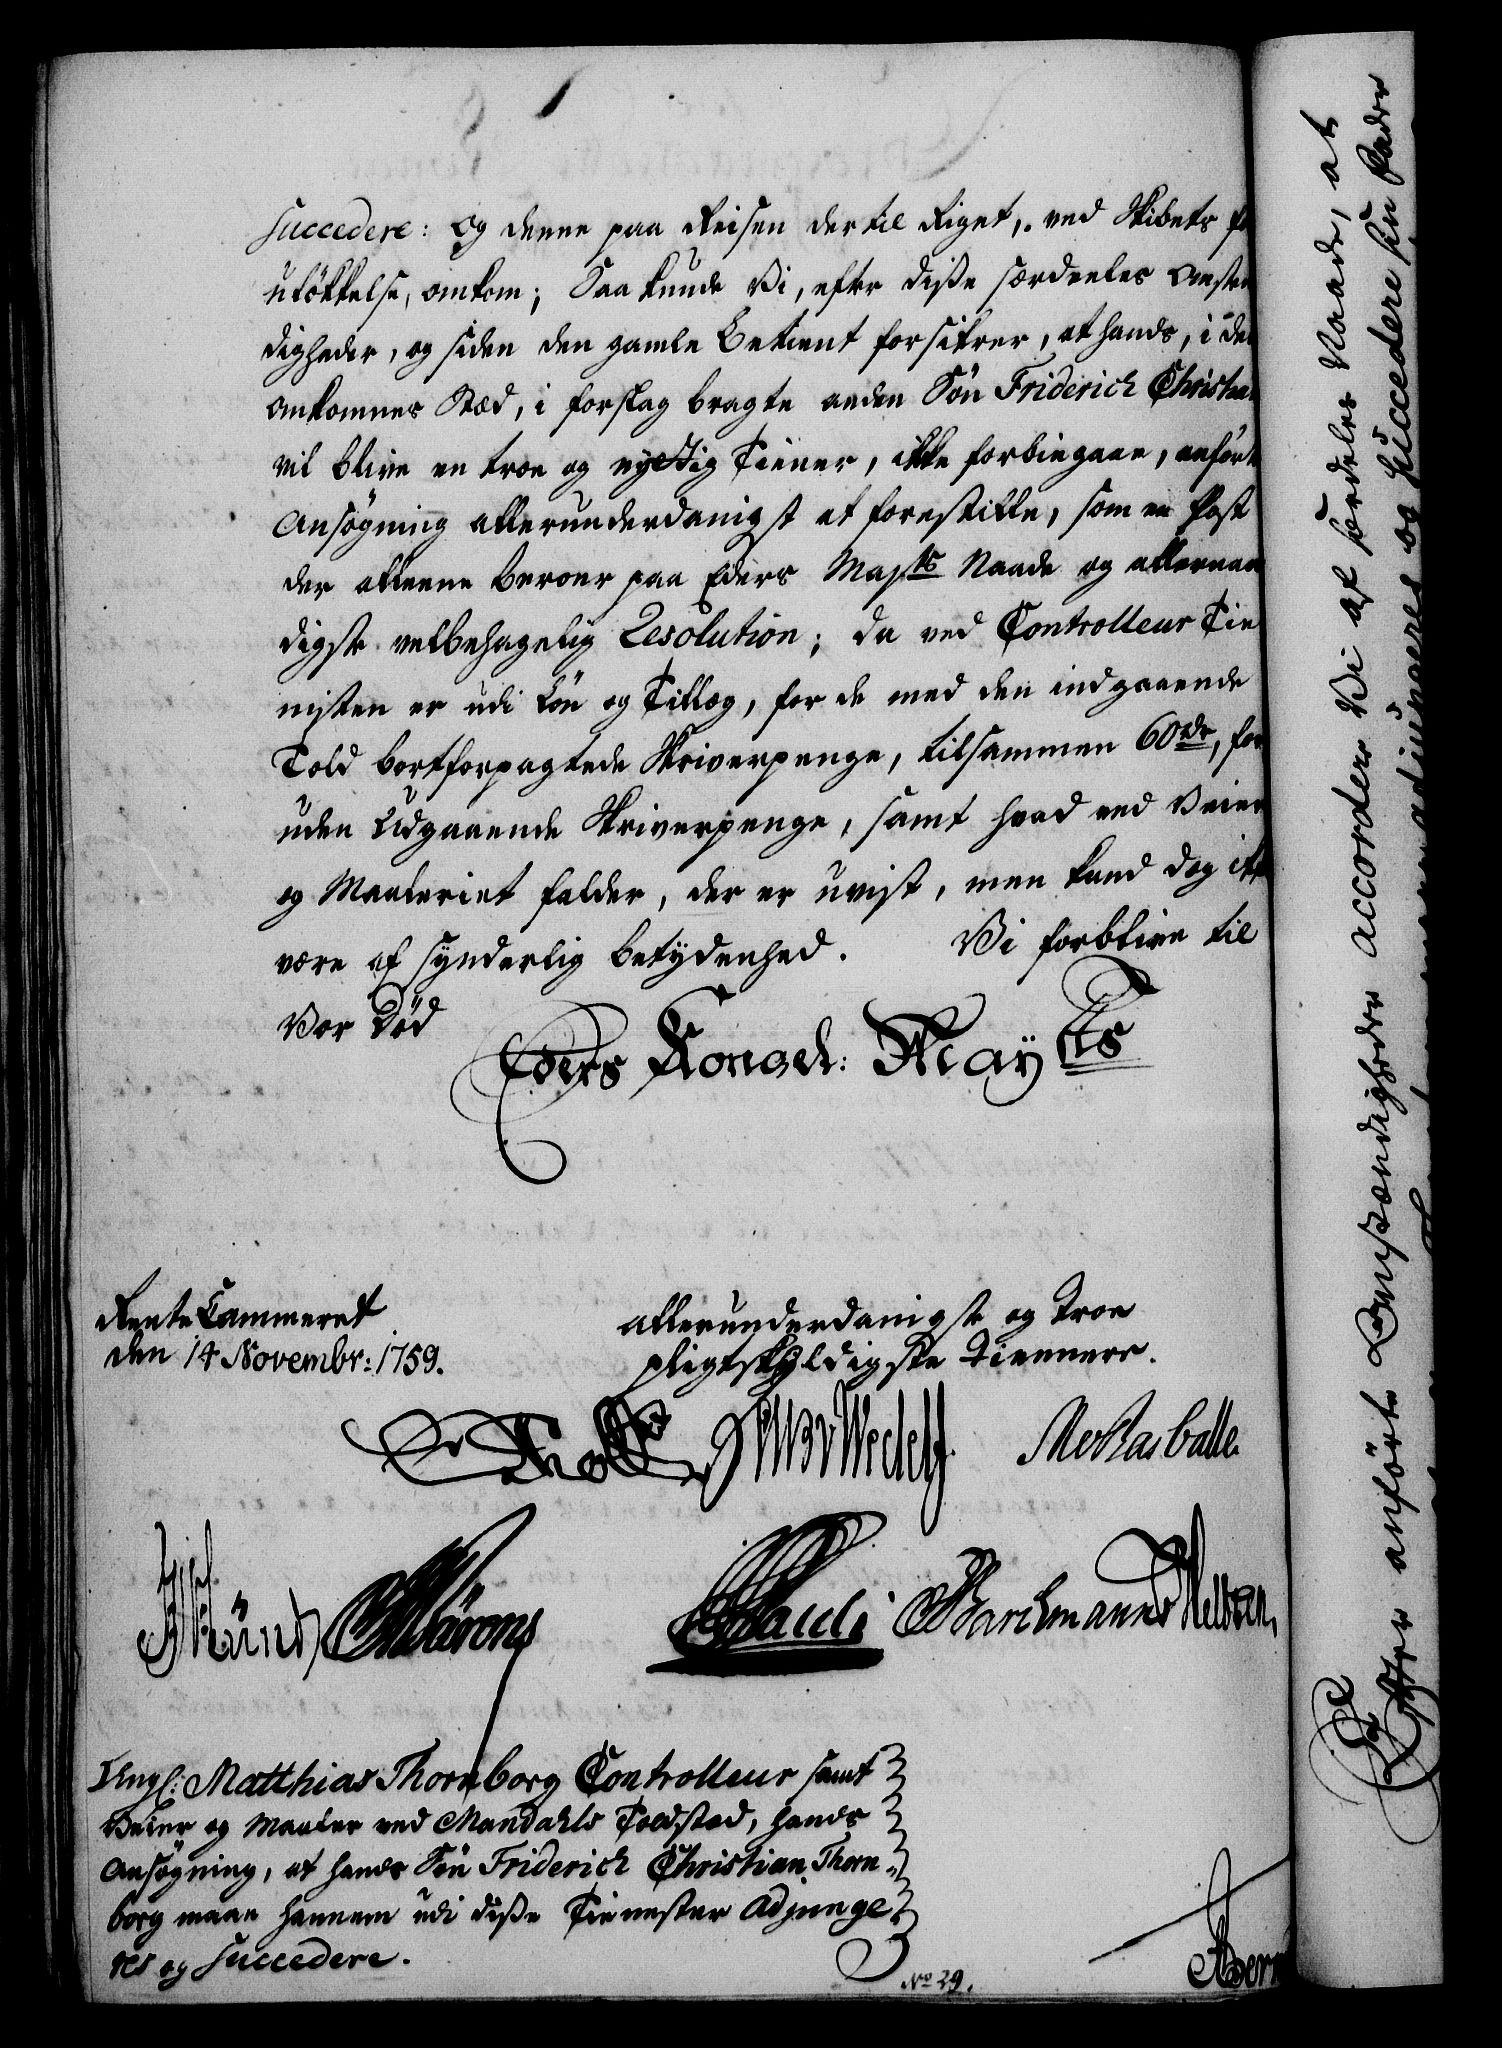 succedere: og denne paa Reisen der til Riget, ved Skibets for
ulökkelse, omkom; Saa kunde Vi, efter disse særdeeles Omstæn
digheder, og siden den gamle Betient forsikrer, at hands, i den
omkomnes Sted, i forslag bragte anden Sön Friderich Christian
vil blive en troe og nyttig Tiener, ikke forbiegaae, anförte
Ansögning allerunderdanigst at forestille, som en Post
der alleene beroer paa Eders Mayts Naade og allernaa
digste velbehagelig Resolution; da ved Controlleur Tie
nisten er udi Lön og Tillæg, for de med den indgaaende
Told bortforpagtede Skriverpenge, tilsammen 60 rdr, for
uden Udgaaende Skriverpenge, samt hvad ved Veier
og Maaleriet falder, der er uvist, men kand dog ikke
være af synderlig betydenhed. Vi forblive til
Vor Död
Eders Kongel: Mayts
Rente Cammeret
den 14 Novembr: 1759.
allerunderdanigst og Troe
pligtskyldigste Tiennere.
Holst Wedell.
Pauli Barchmann
Angl: Matthias Thornborg Controlleur samt
Veier og Maaler ved Mandahls Toldsted, hands
Ansögning, at hands Sön Friderich Christian Thorn-
borg maae hannem udi disse Tienester Adjunge-
res og succedere.
No 29.
Efter anförte Omstændigheder accorderer Vi af særdeles Naade, at
adjungeres og succedere sin Fader